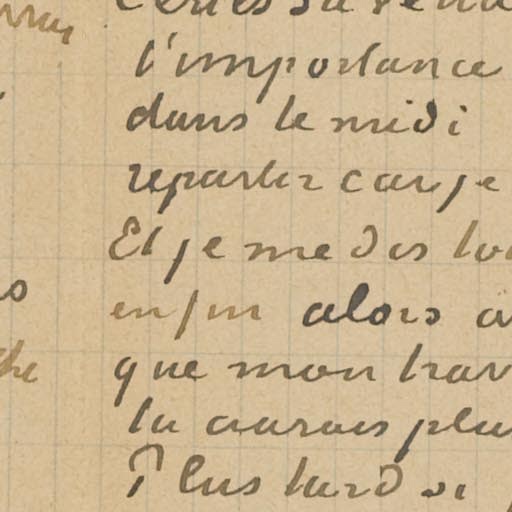 l'importance
dans le midi
repartir car je
Et je me dis
enfin alors
que mon trav
tu aurais plu
Plus tard si